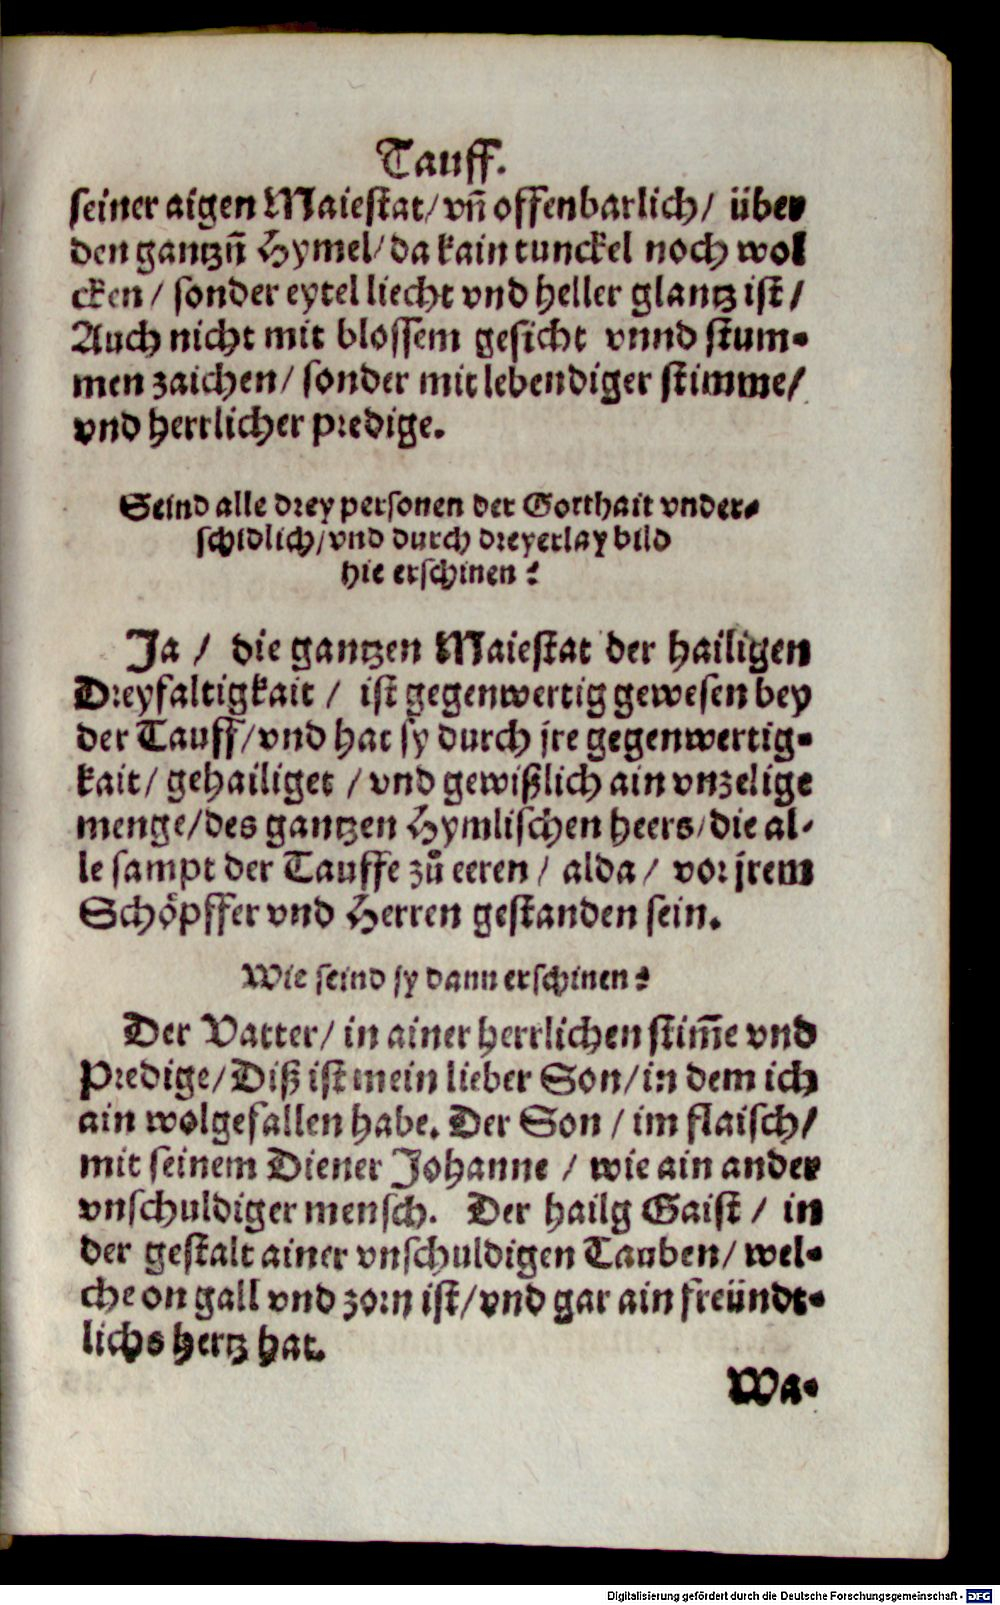 Tauff.
seiner aigen Maiestat/ vñ offenbarlich/ über
den gantzñ Hymel/ da kain tunckel noch wol
cken/ sonder eytel liecht vnd heller glantz ist/
Auch nicht mit blossem gesicht vnnd stum-
men zaichen/ sonder mit lebendiger stimme/
vnd herrlicher predige.
Seind alle drey personen der Gotthait vnder-
schidlich/ vnd durch dreyerlay bild
hie erschinen?
Ja/ die gantzen Maiestat der hailigen
Dreyfaltigkait/ ist gegenwertig gewesen bey
der Tauff/ vnd hat sy durch jre gegenwertig-
kait/ gehailiget/ vnd gewißlich ain vnzelige
menge/ des gantzen Hymlischen heers/ die al-
le sampt der Tauffe zů eeren/ alda/ vor jrem
Schöpffer vnd Herren gestanden sein.
Wie seind sy dann erschinen?
Der Vatter/ in ainer herrlichen stim̃e vnd
Predige/ Diß ist mein lieber Son/ in dem ich
ain wolgefallen habe. Der Son/ im flaisch/
mit seinem Diener Johanne/ wie ain ander
vnschuldiger mensch. Der hailg Gaist/ in
der gestalt ainer vnschuldigen Tauben/ wel-
che on gall vnd zorn ist/ vnd gar ain freündt-
lichs hertz hat.
Wa-
Digitalisierung gefördert durch die Deutsche Forschungsgemeinschaft - DFG